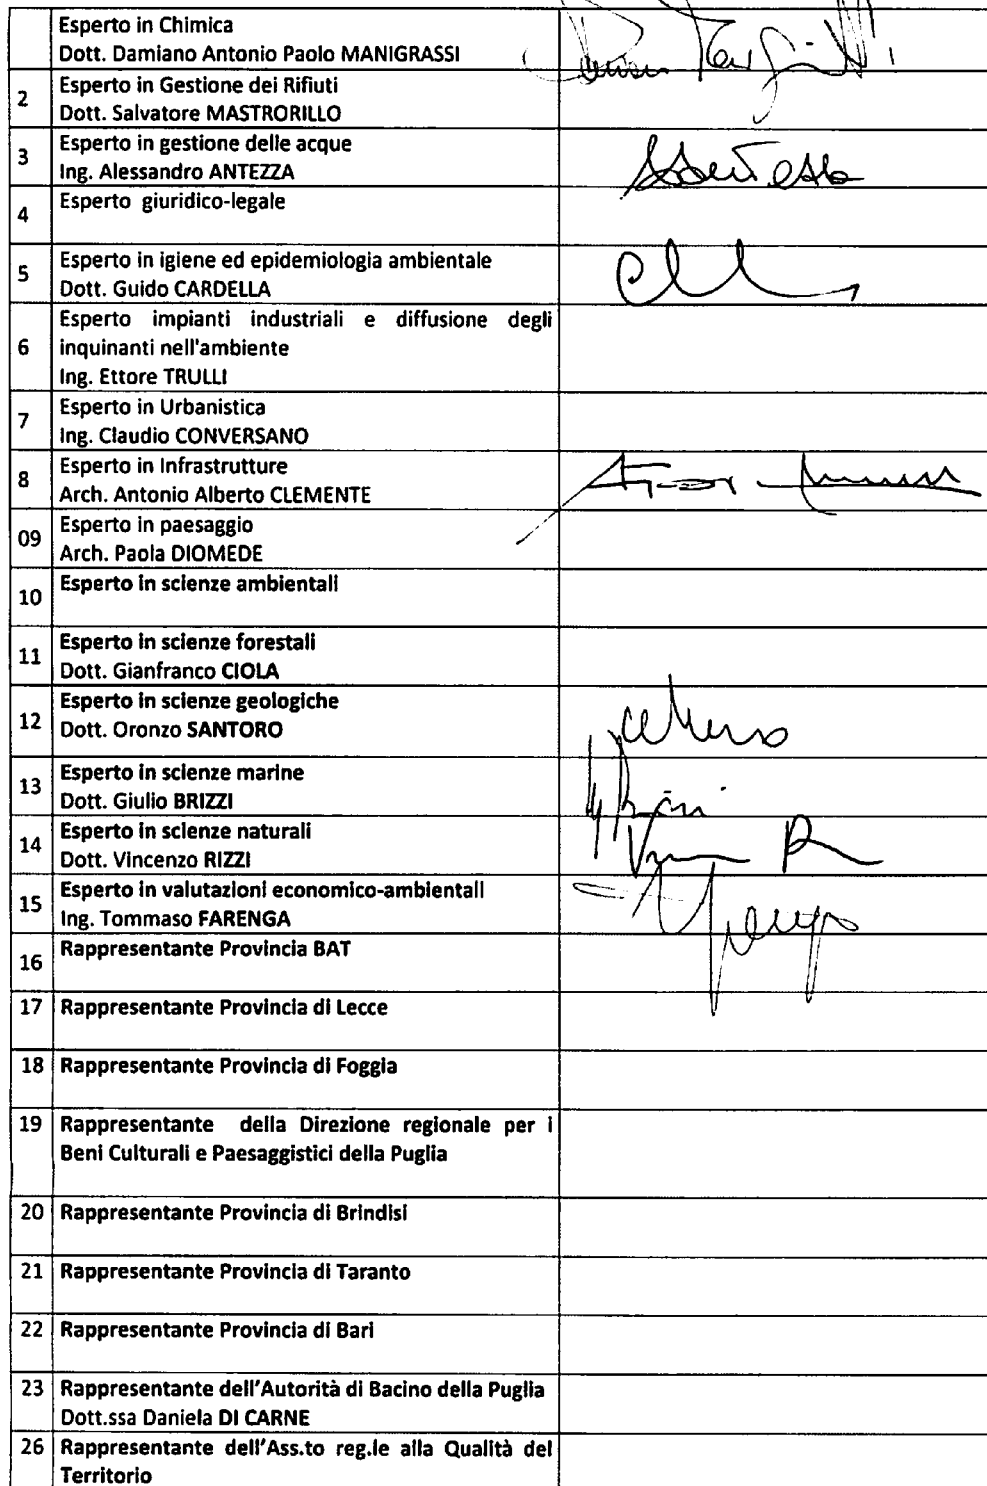 Esperto in Chimica
Dott. Damiano Antonio Paolo MANIGRASSI
2
Esperto in Gestione dei Rifiuti
Dott. Salvatore MASTRORILLO
3
Esperto in gestione delle acque
Ing. Alessandro ANTEZZA
4
Esperto giuridico-legale
5
Esperto in igiene ed epidemiologia ambientale
Dott. Guido CARDELLA
6
Esperto impianti industriali e diffusione degli
inquinanti nell'ambiente
Ing. Ettore TRULLI
7
Esperto in Urbanistica
Ing. Claudio CONVERSANO
8
Esperto in Infrastrutture
Arch. Antonio Alberto CLEMENTE
09
Esperto in paesaggio
Arch. Paola DIOMEDE
10
Esperto in scienze ambientali
11
Esperto in scienze forestali
Dott. Gianfranco CIOLA
12
Esperto in scienze geologiche
Dott. Oronzo SANTORO
13
Esperto in scienze marine
Dott. Giulio BRIZZI
14
Esperto in scienze naturali
Dott. Vincenzo RIZZI
15
Esperto in valutazioni economico-ambientali
Ing. Tommaso FARENGA
16
Rappresentante Provincia BAT
17
Rappresentante Provincia di Lecce
18
Rappresentante Provincia di Foggia
19
Rappresentante della Direzione regionale per i
Beni Culturali e Paesaggistici della Puglia
20
Rappresentante Provincia di Brindisi
21
Rappresentante Provincia di Taranto
22
Rappresentante Provincia di Bari
23
Rappresentante dell'Autorità di Bacino della Puglia
Dott.ssa Daniela DI CARNE
26
Rappresentante dell'Ass.to reg.le alla Qualità del
Territorio